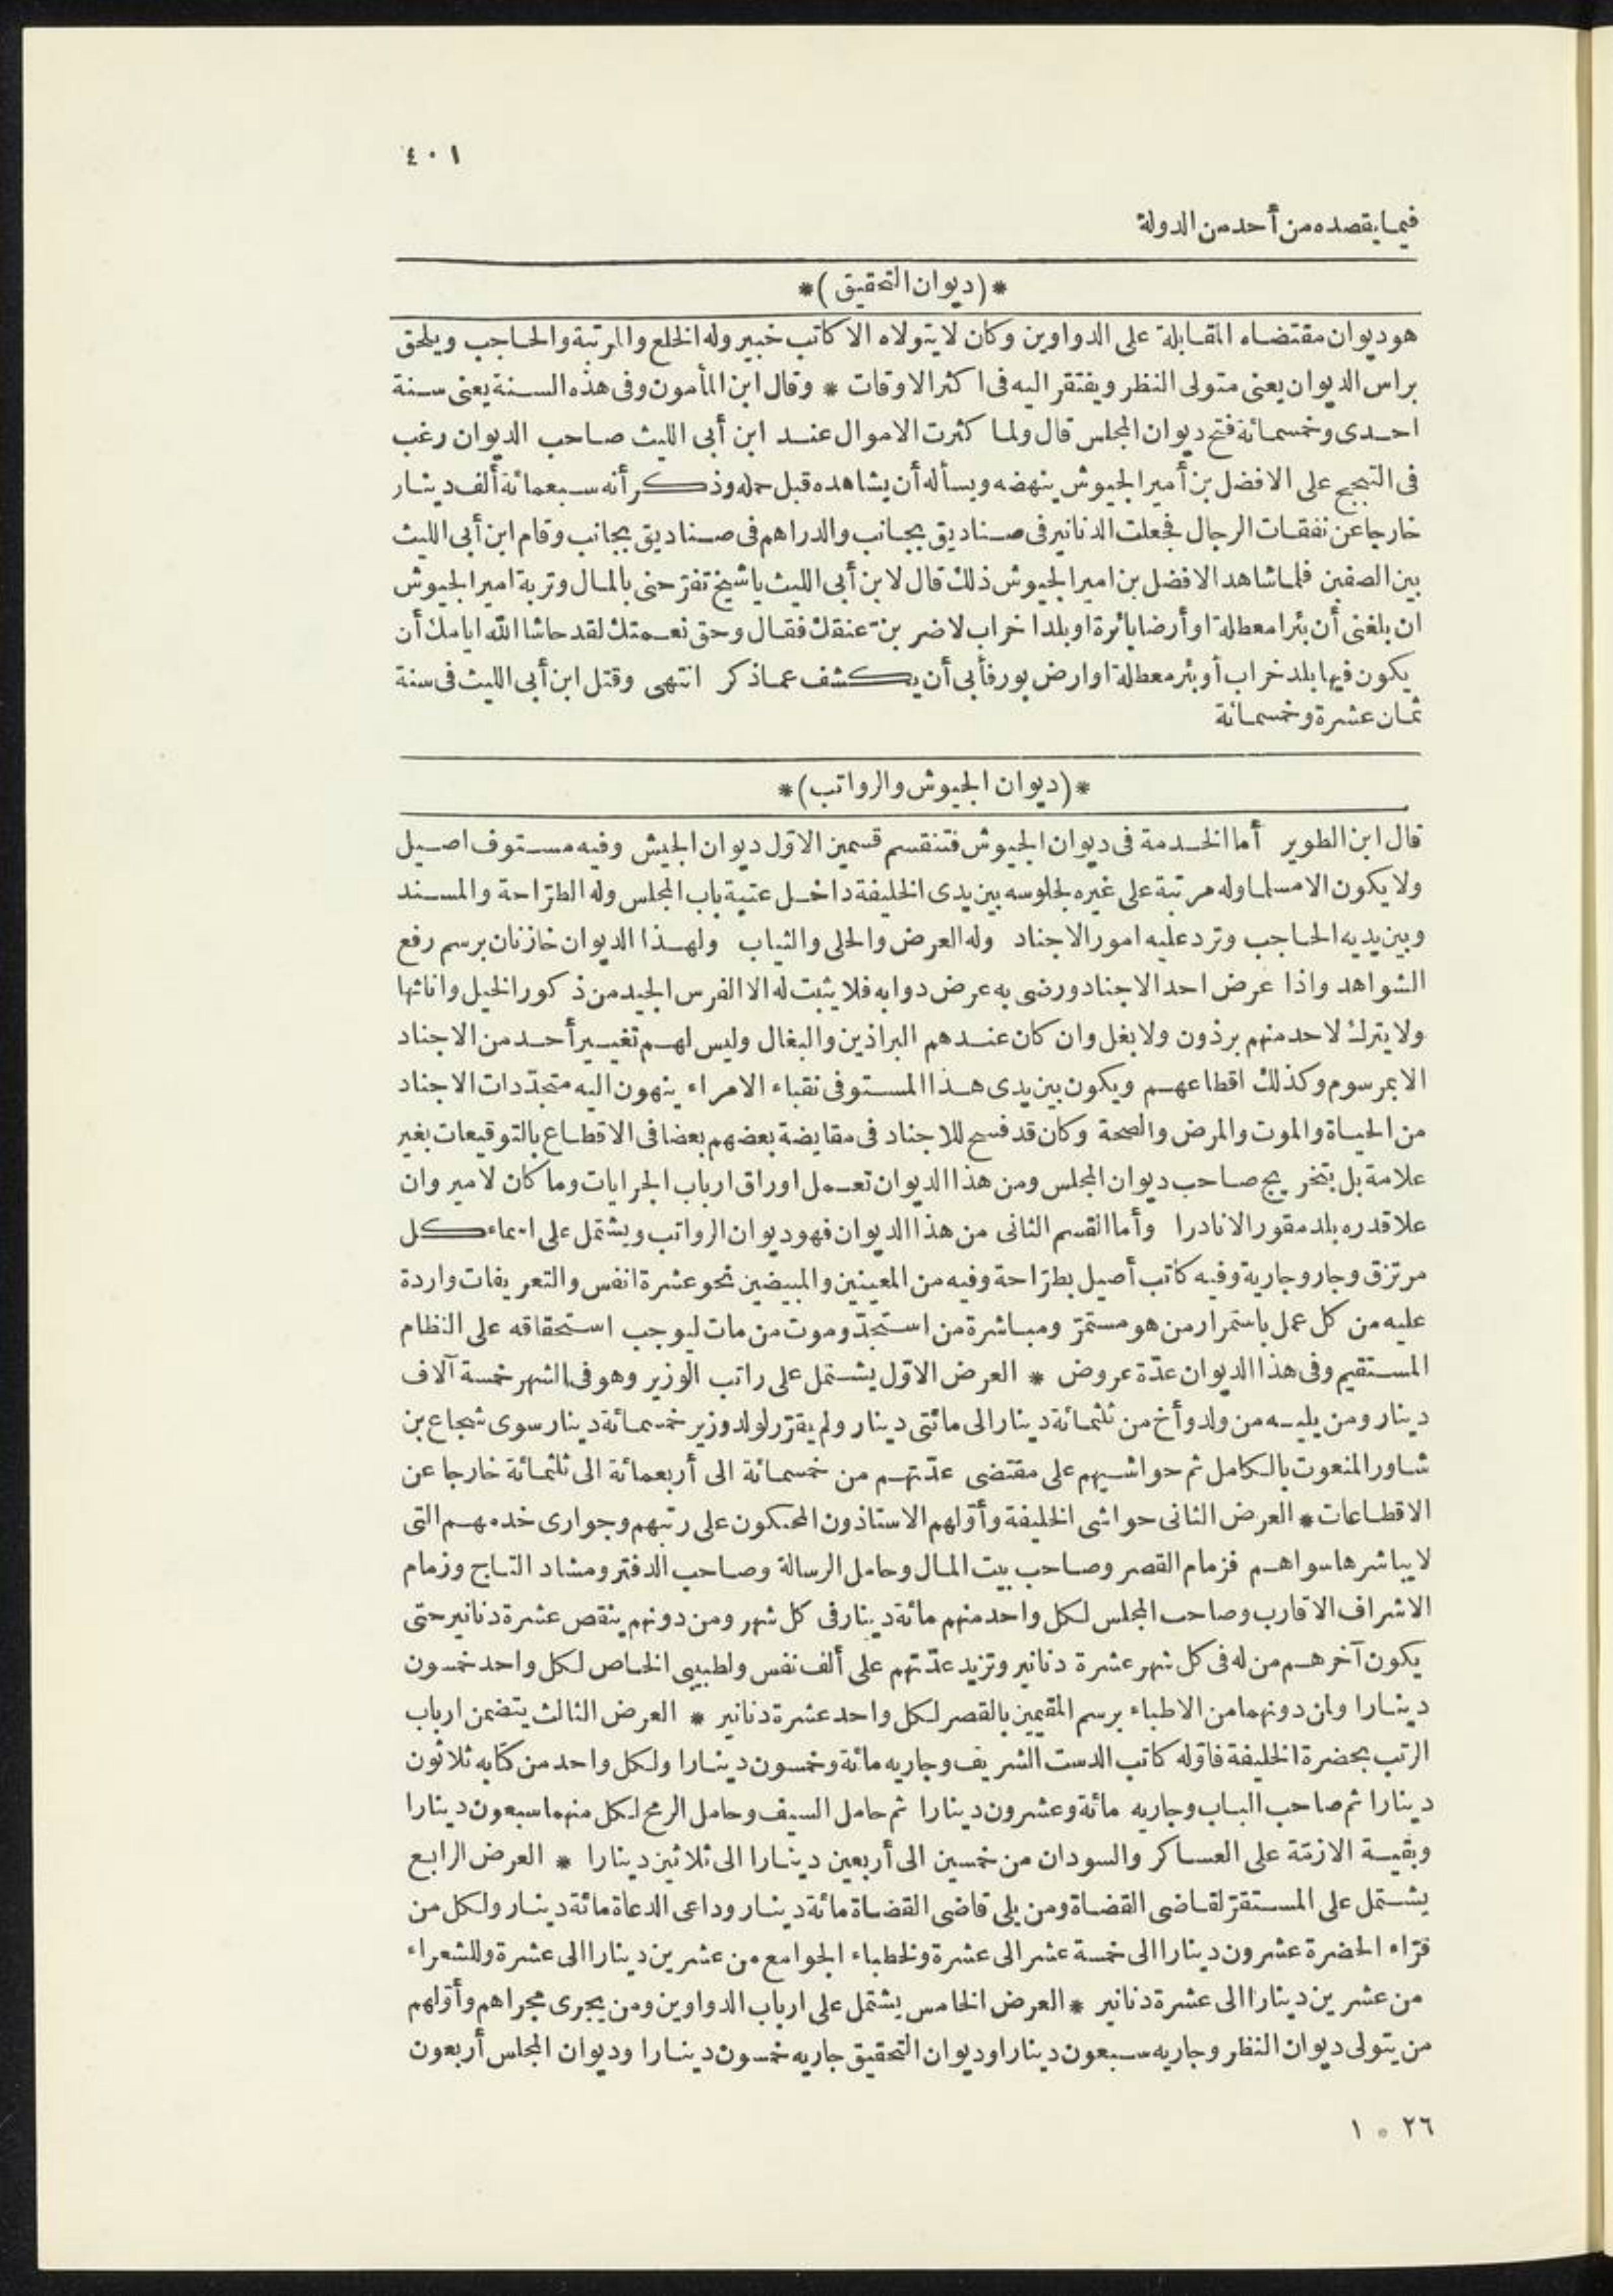 ٤٠١
فيما يقصده من أحد من الدولة
*(ديوان التحقيق)*
هو ديوان مقتضاه المقابلة على الدواوين وكان لا يتولاه الا كاتب خبير وله الخلع والمرتبة والحاجب ويلحق
براس الديوان يعنى متولى النظر ويفتقر اليه فى اكثر الاوقات * وقال ابن المأمون وفى هذه السنة يعنى سنة
احدى وخمسمائة فتح ديوان المجلس قال ولما كثرت الاموال عند ابن أبى الليث صاحب الديوان رغب
فى التبجح على الافضل بن أمير الجيوش ينهضه ويسأله أن يشاهده قبل حمله وذكر أنه سبعمائة ألف دينار
خارجا عن نفقات الرجال فجعلت الدنانير فى صناديق بجانب والدراهم فى صناديق بجانب وقام ابن أبى الليث
بين الصفين فلما شاهد الافضل بن امير الجيوش ذلك قال لابن أبى الليث يا شيخ تفرّحنى بالمال وتربة امير الجيوش
ان بلغنى أن بئرا معطلة او أرضا بائرة او بلدا خراب لاضربنّ عنقك فقال وحق نعمتك لقد حاشا الله ايامك أن
يكون فيها بلد خراب أو بئر معطلة او ارض بور فأبى أن يكشف عما ذكر انتهى وقتل ابن أبى الليث فى سنة
ثمان عشرة وخمسمائة
*(ديوان الجيوش والرواتب)*
قال ابن الطوير أما الخدمة فى ديوان الجيوش فتنقسم قسمين الاوّل ديوان الجيش وفيه مستوف اصيل
ولا يكون الا مسلما وله مرتبة على غيره لجلوسه بين يدى الخليفة داخل عتبة باب المجلس وله الطرّاحة والمسند
وبين يديه الحاجب وترد عليه امور الاجناد وله العرض والحلى والثياب ولهذا الديوان خازنان برسم رفع
الشواهد واذا عرض احد الاجناد ورضى به عرض دوابه فلا يثبت له الا الفرس الجيد من ذكور الخيل واناثها
ولا يترك لاحد منهم برذون ولا بغل وان كان عندهم البراذين والبغال وليس لهم تغيير أحد من الاجناد
الا بمرسوم وكذلك اقطاعهم ويكون بين يدى هذا المستوفى نقباء الامراء ينهون اليه متجدّدات الاجناد
من الحياة والموت والمرض والصحة وكان قد فسح للاجناد فى مقايضة بعضهم بعضا فى الاقطاع بالتوقيعات بغير
علامة بل بتخريج صاحب ديوان المجلس ومن هذا الديوان تعمل اوراق ارباب الجرايات وما كان لامير وان
علا قدره بلد مقور الا نادرا وأما القسم الثانى من هذا الديوان فهو ديوان الرواتب ويشتمل على اسماء كل
مرتزق وجار وجارية وفيه كاتب أصيل بطرّاحة وفيه من المعينين والمبيضين نحو عشرة انفس والتعريفات واردة
عليه من كل عمل باستمرار من هو مستمرّ ومباشرة من استجدّ وموت من مات ليوجب استحقاقه على النظام
المستقيم وفى هذا الديوان عدّة عروض * العرض الاوّل يشتمل على راتب الوزير وهو فى الشهر خمسة آلاف
دينار ومن يليه من ولد وأخ من ثلثمائة دينار الى مائتى دينار ولم يقرّر لولد وزير خمسمائة دينار سوى شجاع بن
شاور المنعوت بالكامل ثم حواشيهم على مقتضى عدّتهم من خمسمائة الى أربعمائة الى ثلثمائة خارجا عن
الاقطاعات * العرض الثانى حواشى الخليفة وأوّلهم الاستاذون المحنكون على رتبهم وجوارى خدمهم التى
لا يباشرها سواهم فزمام القصر وصاحب بيت المال وحامل الرسالة وصاحب الدفتر ومشاد التاج وزمام
الاشراف الاقارب وصاحب المجلس لكل واحد منهم مائة دينار فى كل شهر ومن دونهم ينقص عشرة دنانير حتى
يكون آخرهم من له فى كل شهر عشرة دنانير وتزيد عدّتهم على ألف نفس ولطبيبى الخاص لكل واحد خمسون
دينارا ولمن دونهما من الاطباء برسم المقيمين بالقصر لكل واحد عشرة دنانير * العرض الثالث يتضمن ارباب
الرتب بحضرة الخليفة فاوّله كاتب الدست الشريف وجاريه مائة وخمسون دينارا ولكل واحد من كتابه ثلاثون
دينارا ثم صاحب الباب وجاريه مائة وعشرون دينارا ثم حامل السيف وحامل الرمح لكل منهما سبعون دينارا
وبقية الازمّة على العساكر والسودان من خمسين الى أربعين دينارا الى ثلاثين دينارا * العرض الرابع
يشتمل على المستقرّ لقاضى القضاة ومن يلى قاضى القضاة مائة دينار وداعى الدعاة مائة دينار ولكل من
قرّاء الحضرة عشرون دينارا الى خمسة عشر الى عشرة ولخطباء الجوامع من عشرين دينارا الى عشرة وللشعراء
من عشرين دينارا الى عشرة دنانير * العرض الخامس يشتمل على ارباب الدواوين ومن يجرى مجراهم وأوّلهم
من يتولى ديوان النظر وجاريه سبعون دينارا وديوان التحقيق جاريه خمسون دينارا وديوان المجلس أربعون
٢٦ * ١